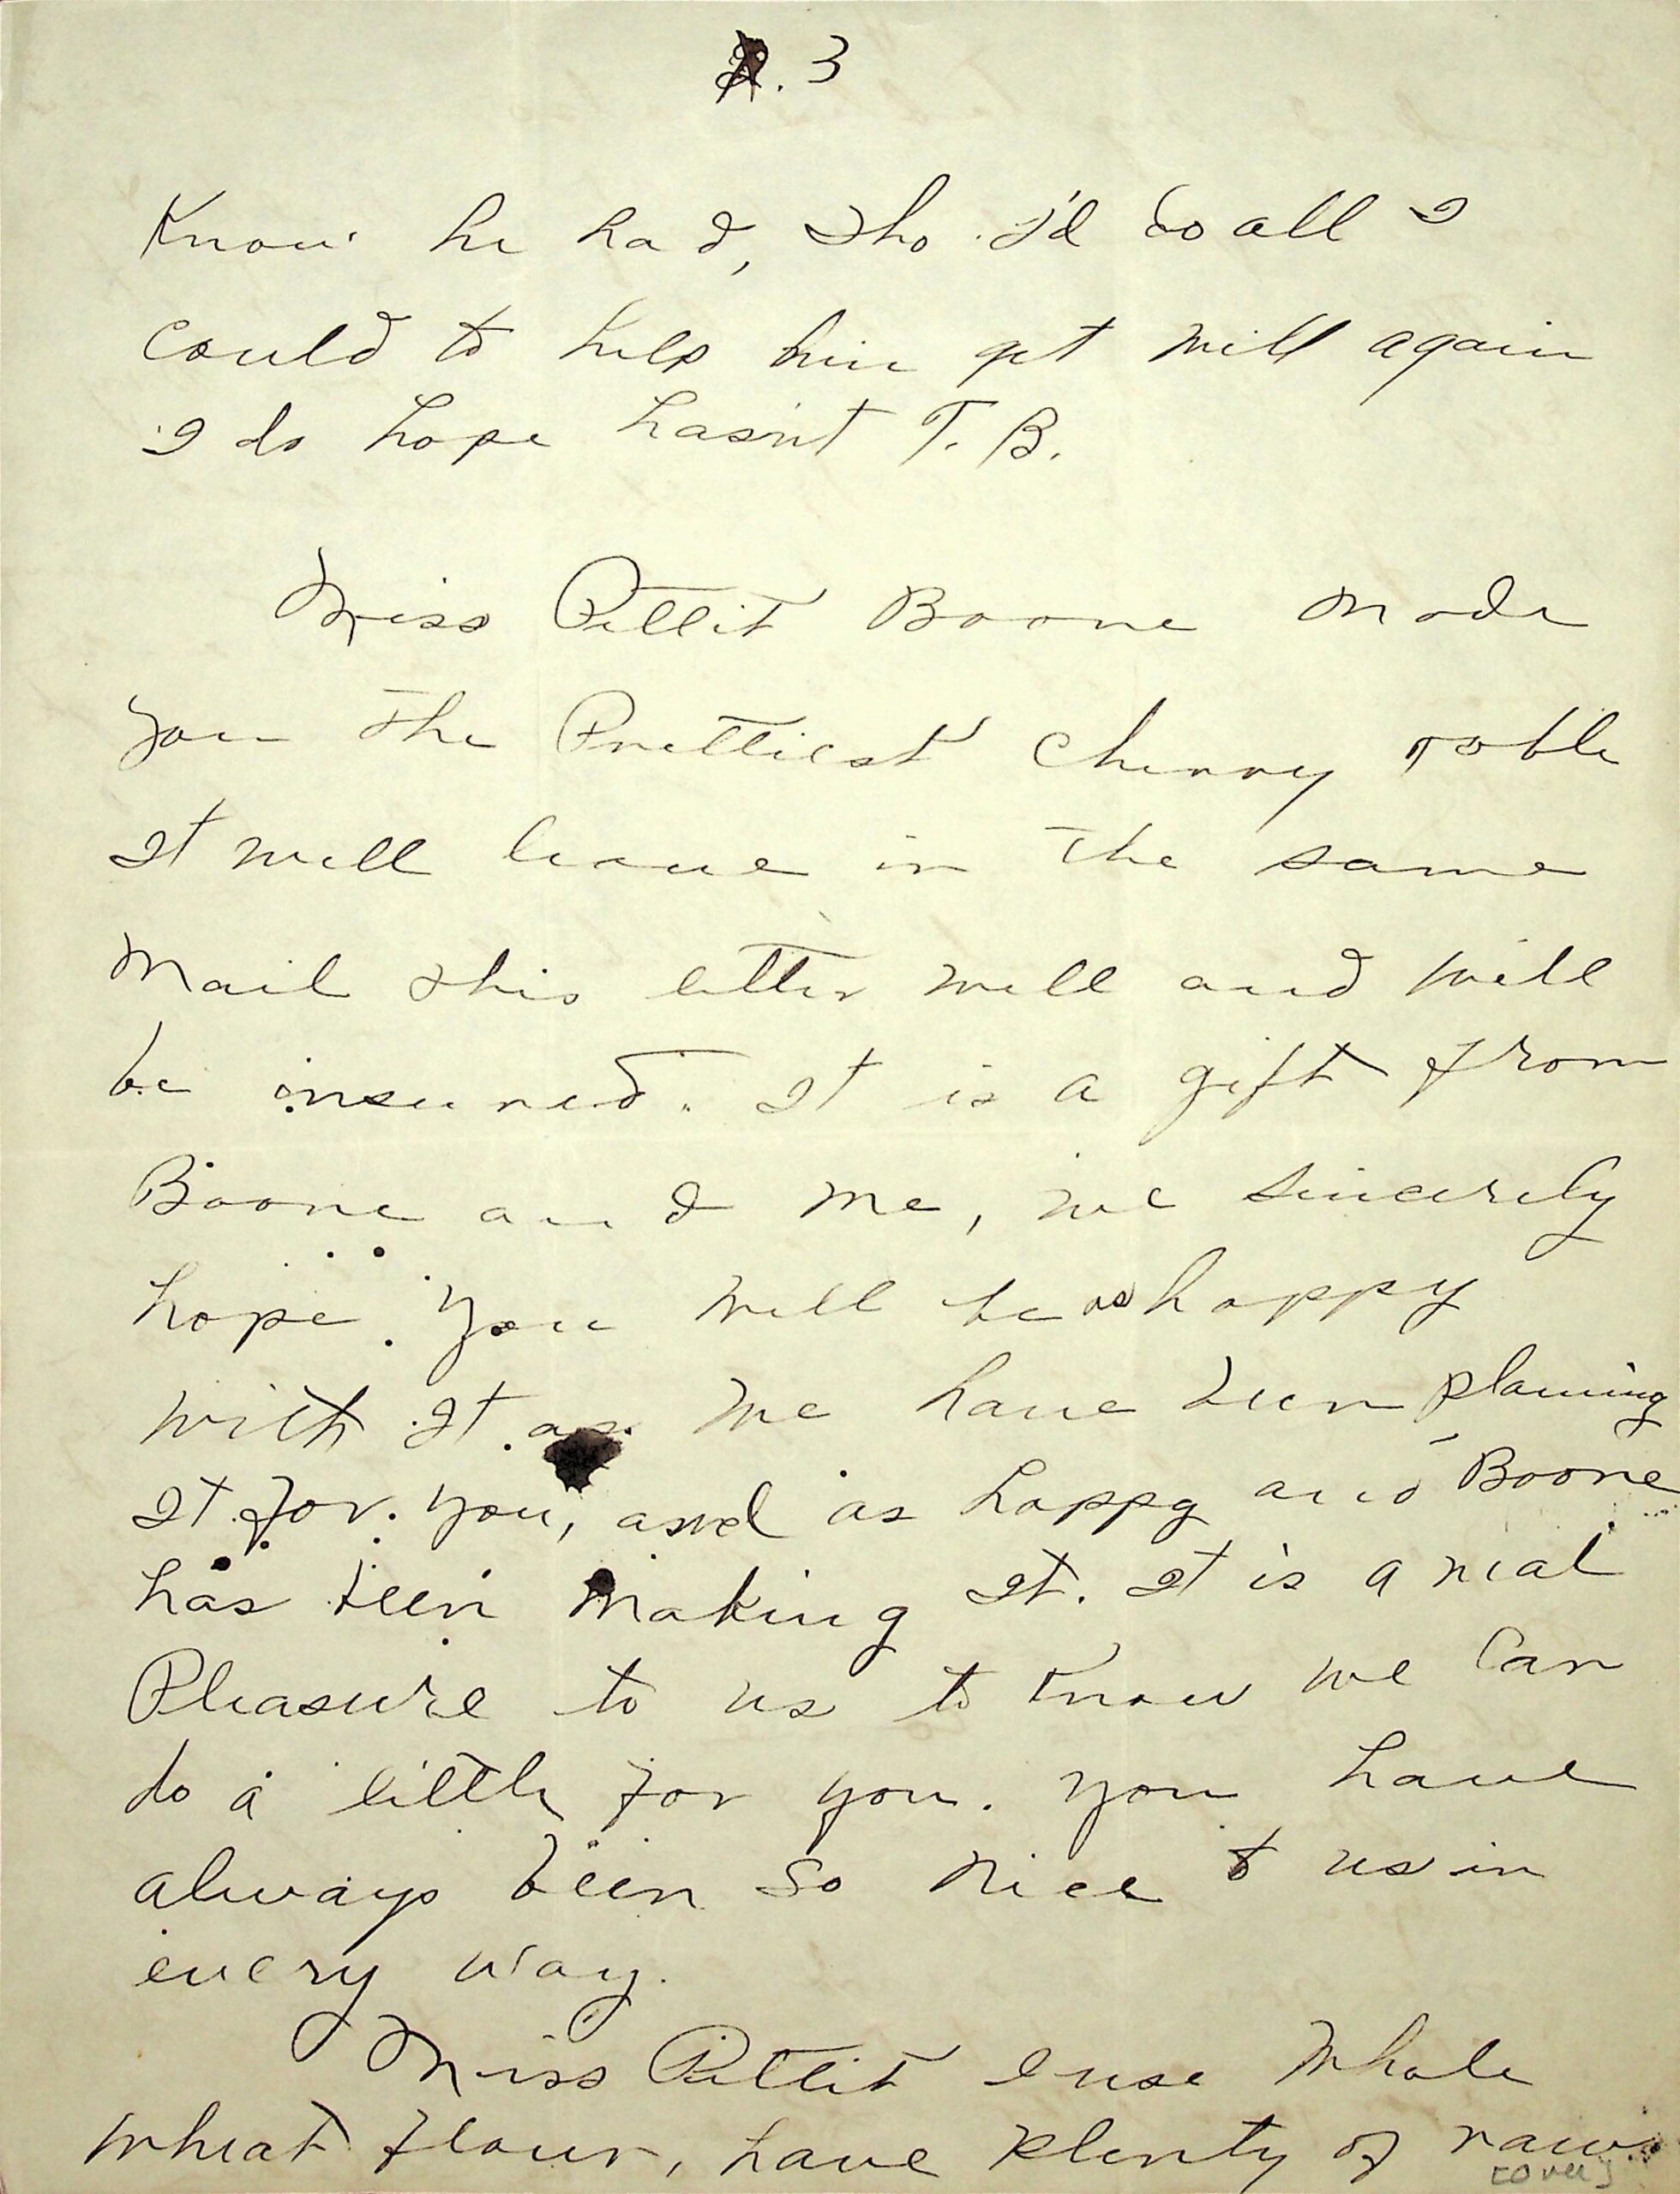 P. 3
Know he had, tho I'd do all I
could to help him get well again
I do hope hasn't T. B.
Miss Pettit Boone made
you the Prettiest cherry table
It will leave in the same
mail this letter will and will
be insured. It is a gift from
Boone and me, we sincerely
hope you will be as happy
with It as we have been planning
It for you, and as happy and Boone
has been making It. It is a real
Pleasure to us to Know we can
do a little for you. You have
always been so nice to us in
every way.
Miss Pettit I use whole
wheat flour, have plenty of raw
(over)